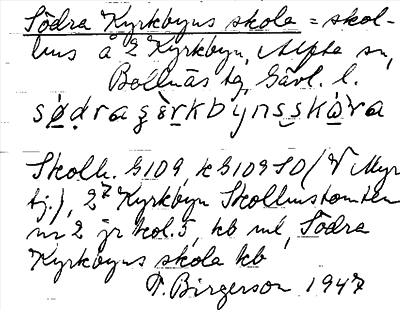 Södra Kyrkbyns skola = skol-
hus å 2 Kyrkbyn, Alfta sn,
Bollnäs tg, Gävl. l.
Skolh. G109, k G109 SO/V Myr
tj.), 2⁷ Kyrkbyn Skollmstomten
nr 2 jr kol. 5, kb ml, Södra
Kyrkbyns skola kb
F. Birgerson 1947